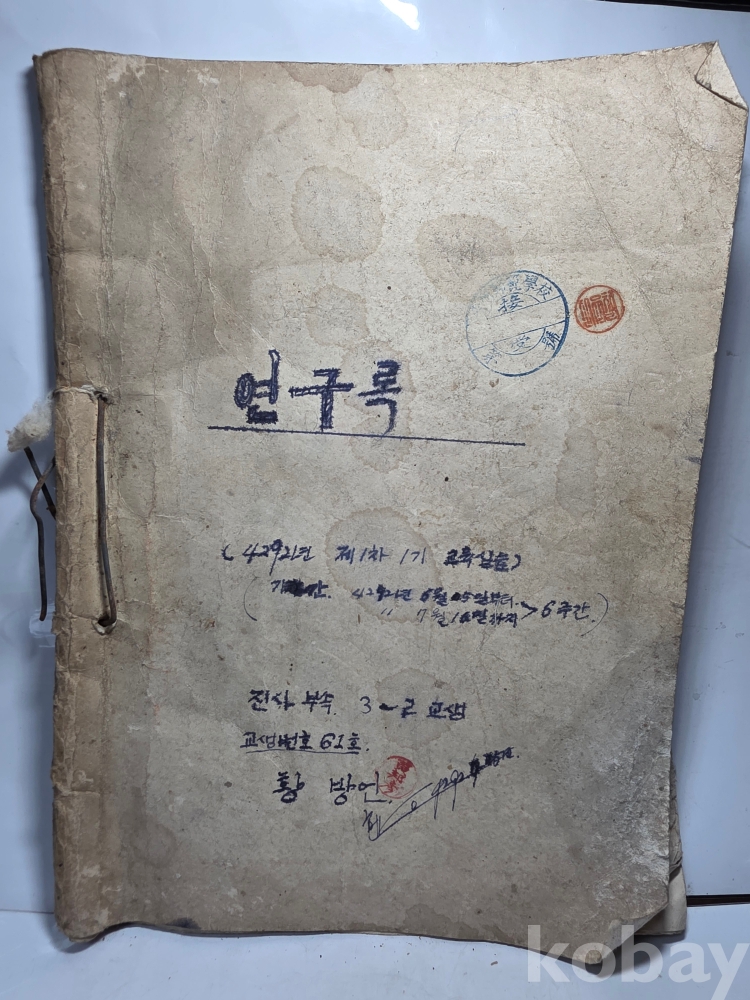 學校
接
受
號
연구록
(4292년 제1차 1기 교육실습)
(기간. 4292년 6월 05일부터.
〃 7월 16일까지 > 6주간.)
진사 부속 3-2 교생
교생번호 61호.
황 방언.
kobay